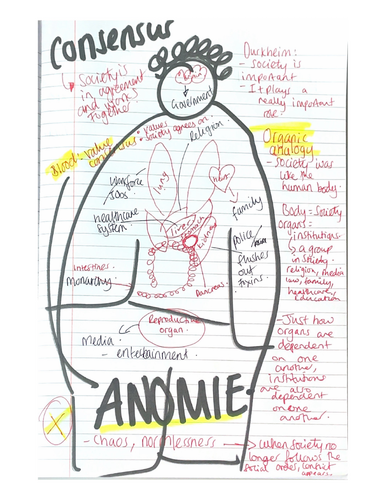 Consensus
↳ Society is
in agreement
and works
together
Government
Durkheim:
- society is
important
- It plays a
really important
role.
Blood: value
consensus
• values
society agrees on
Religion
Organic
analogy
- society was
like the
human body.
Body = Society
organs =
institutions
↳ a group
in society.
religion, media
law, family,
healthcare,
education
Workforce
JOBS
lung
heart
family
healthcare
system
liver
stomach
kidney
Police/
flushes
out
toxins.
intestines
monarchy
Pancreas
Reproductive
organ
Media
- entertainment
- Just how
organs are
dependent
on one
another,
institutions
are also
dependent
on one
another.
ANOMIE
X
- Chaos, normlessness → When society no
longer follows the
social order, conflict
appears